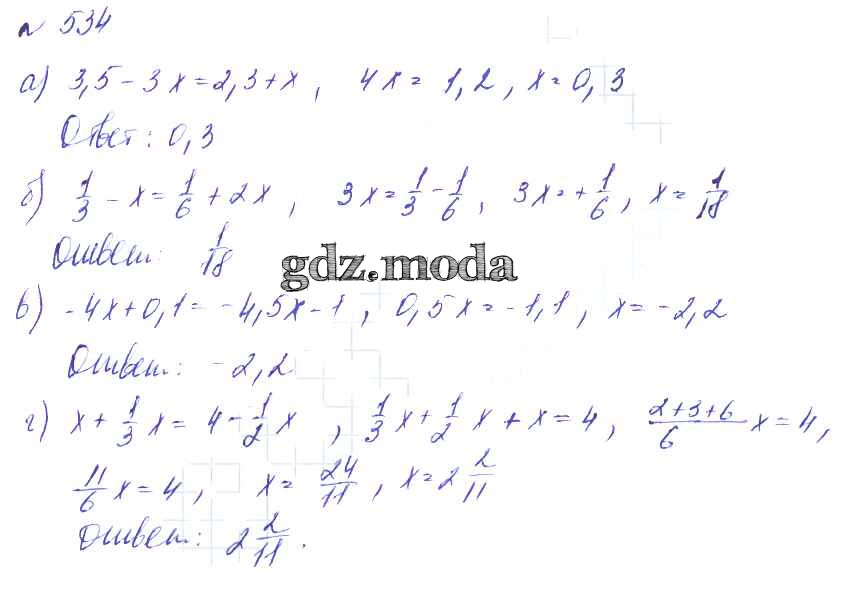 № 534
а) 3,5 - 3x = 2,3 + x, 4x = 1,2, x = 0,3
Ответ: 0,3
б) 1/3 - x = 1/6 + 2x, 3x = 1/3 - 1/6, 3x = + 1/6, x = 1/18
Ответ: 1/18
gdz.moda
в) -4x + 0,1 = -4,5x - 1, 0,5x = -1,1, x = -2,2
Ответ: -2,2
г) x + 1/3 x = 4 - 1/2 x, 1/3 x + 1/2 x + x = 4, 2+3+6/6 x = 4,
11/6 x = 4, x = 24/11, x = 2 2/11
Ответ: 2 2/11.